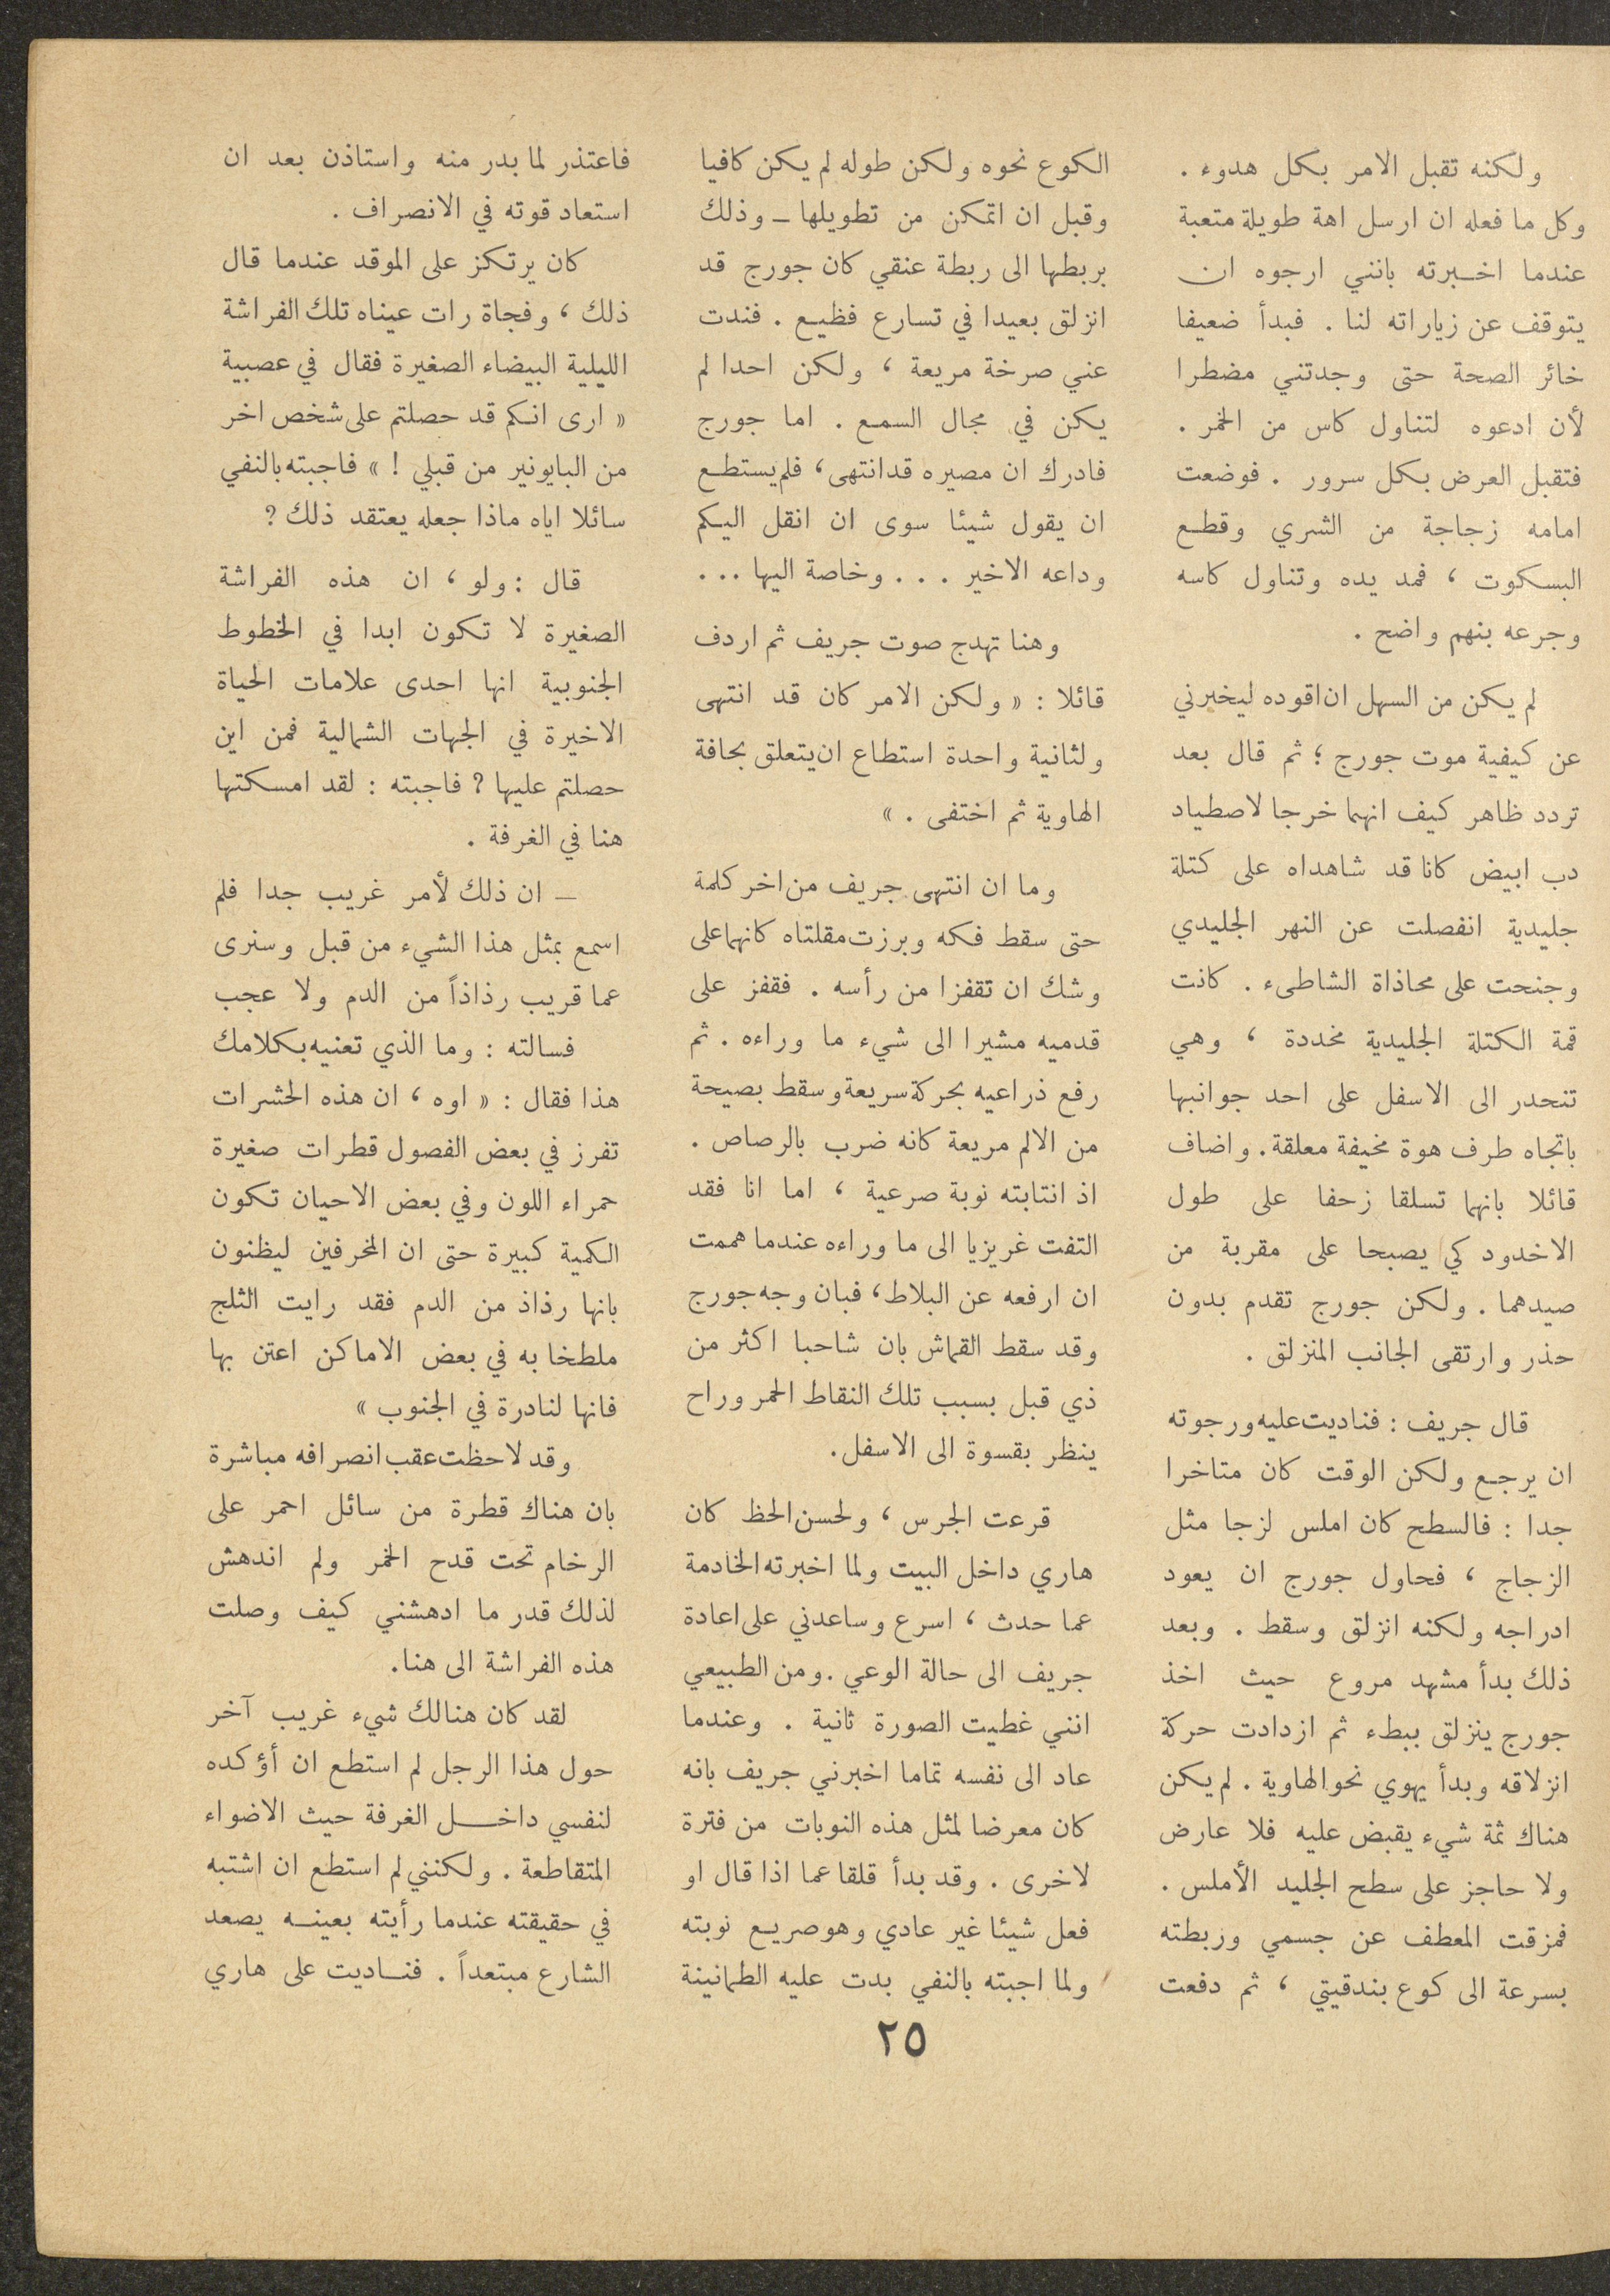 ولكنه تقبل الامر بكل هدوء .
وكل ما فعله ان ارسل اهة طويلة متعبة
عندما اخبرته بانني ارجوه ان
يتوقف عن زياراته لنا . فبدأ ضعيفا
خائر الصحة حتى وجدتني مضطرا
لأن ادعوه لتناول كاس من الخمر .
فتقبل العرض بكل سرور . فوضعت
امامه زجاجة من الشري وقطع
البسكوت ، فمد يده وتناول كاسه
وجرعه بنهم واضح .
لم يكن من السهل ان اقوده ليخبرني
عن كيفية موت جورج ؛ ثم قال بعد
تردد ظاهر كيف انهما خرجا لاصطياد
دب ابيض كانا قد شاهداه على كتلة
جليدية انفصلت عن النهر الجليدي
وجنحت على محاذاة الشاطىء . كانت
قمة الكتلة الجليدية مخددة ، وهي
تنحدر الى الاسفل على احد جوانبها
باتجاه طرف هوة مخيفة معلقة . واضاف
قائلا بانهما تسلقا زحفا على طول
الاخدود كي يصبحا على مقربة من
صيدهما . ولكن جورج تقدم بدون
حذر وارتقى الجانب المنزلق .
قال جريف : فناديت عليه ورجوته
ان يرجع ولكن الوقت كان متاخرا
جدا : فالسطح كان املس لزجا مثل
الزجاج ، فحاول جورج ان يعود
ادراجه ولكنه انزلق وسقط . وبعد
ذلك بدأ مشهد مروع حيث اخذ
جورج ينزلق ببطء ثم ازدادت حركة
انزلاقه وبدأ يهوي نحو الهاوية . لم يكن
هناك ثمة شيء يقبض عليه فلا عارض
ولا حاجز على سطح الجليد الأملس .
فمزقت المعطف عن جسمي وربطته
بسرعة الى كوع بندقيتي ، ثم دفعت
الكوع نحوه ولكن طوله لم يكن كافيا
وقبل ان اتمكن من تطويلها ــ وذلك
بربطها الى ربطة عنقي كان جورج قد
انزلق بعيدا في تسارع فظيع . فندت
عني صرخة مريعة ، ولكن احدا لم
يكن في مجال السمع . اما جورج
فادرك ان مصيره قد انتهى ، فلم يستطع
ان يقول شيئا سوى ان انقل اليكم
وداعه الاخير . . . وخاصة اليها ...
وهنا تهدج صوت جريف ثم اردف
قائلا : « ولكن الامر كان قد انتهى
ولثانية واحدة استطاع ان يتعلق بحافة
الهاوية ثم اختفى . »
وما ان انتهى جريف من اخر كلمة
حتى سقط فكه وبرزت مقلتاه كانهما على
وشك ان تقفزا من رأسه . فقفز على
قدميه مشيرا الى شيء ما وراءه . ثم
رفع ذراعيه بحركة سريعة وسقط بصيحة
من الالم مريعة كانه ضرب بالرصاص .
اذ انتابته نوبة صرعية ، اما انا فقد
التفت غريزيا الى ما وراءه عندما هممت
ان ارفعه عن البلاط ، فبان وجه جورج
وقد سقط القماش بان شاحبا اكثر من
ذي قبل بسبب تلك النقاط الحمر وراح
ينظر بقسوة الى الاسفل .
قرعت الجرس ، ولحسن الحظ كان
هاري داخل البيت ولما اخبرته الخادمة
عما حدث ، اسرع وساعدني على اعادة
جريف الى حالة الوعي . ومن الطبيعي
انني غطيت الصورة ثانية . وعندما
عاد الى نفسه تماما اخبرني جريف بانه
كان معرضا لمثل هذه النوبات من فترة
لاخرى . وقد بدأ قلقا عما اذا قال او
فعل شيئا غير عادي وهو صريع نوبته
ولما اجبته بالنفي بدت عليه الطمانينة
فاعتذر لما بدر منه واستاذن بعد ان
استعاد قوته في الانصراف .
كان يرتكز على الموقد عندما قال
ذلك ، وفجاة رات عيناه تلك الفراشة
الليلية البيضاء الصغيرة فقال في عصبية
« ارى انكم قد حصلتم على شخص اخر
من البايونير من قبلي ! » فاجبته بالنفي
سائلا اياه ماذا جعله يعتقد ذلك ؟
قال : ولو ، ان هذه الفراشة
الصغيرة لا تكون ابدا في الخطوط
الجنوبية انها احدى علامات الحياة
الاخيرة في الجهات الشمالية فمن اين
حصلتم عليها ؟ فاجبته : لقد امسكتها
هنا في الغرفة .
ــ ان ذلك لأمر غريب جدا فلم
اسمع بمثل هذا الشيء من قبل وسنرى
عما قريب رذاذاً من الدم ولا عجب
فسالته : وما الذي تعنيه بكلامك
هذا فقال : « اوه ، ان هذه الحشرات
تفرز في بعض الفصول قطرات صغيرة
حمراء اللون وفي بعض الاحيان تكون
الكمية كبيرة حتى ان المخرفين ليظنون
بانها رذاذ من الدم فقد رايت الثلج
ملطخا به في بعض الاماكن اعتن بها
فانها لنادرة في الجنوب »
وقد لاحظت عقب انصرافه مباشرة
بان هناك قطرة من سائل احمر على
الرخام تحت قدح الخمر ولم اندهش
لذلك قدر ما ادهشني كيف وصلت
هذه الفراشة الى هنا .
لقد كان هنالك شيء غريب آخر
حول هذا الرجل لم استطع ان أؤكده
لنفسي داخل الغرفة حيث الاضواء
المتقاطعة . ولكنني لم استطع ان اشتبه
في حقيقته عندما رأيته بعينه يصعد
الشارع مبتعداً . فناديت على هاري
٢٥